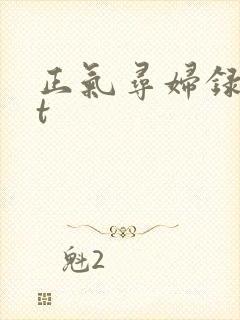 正氣尋婦録
t
魁2